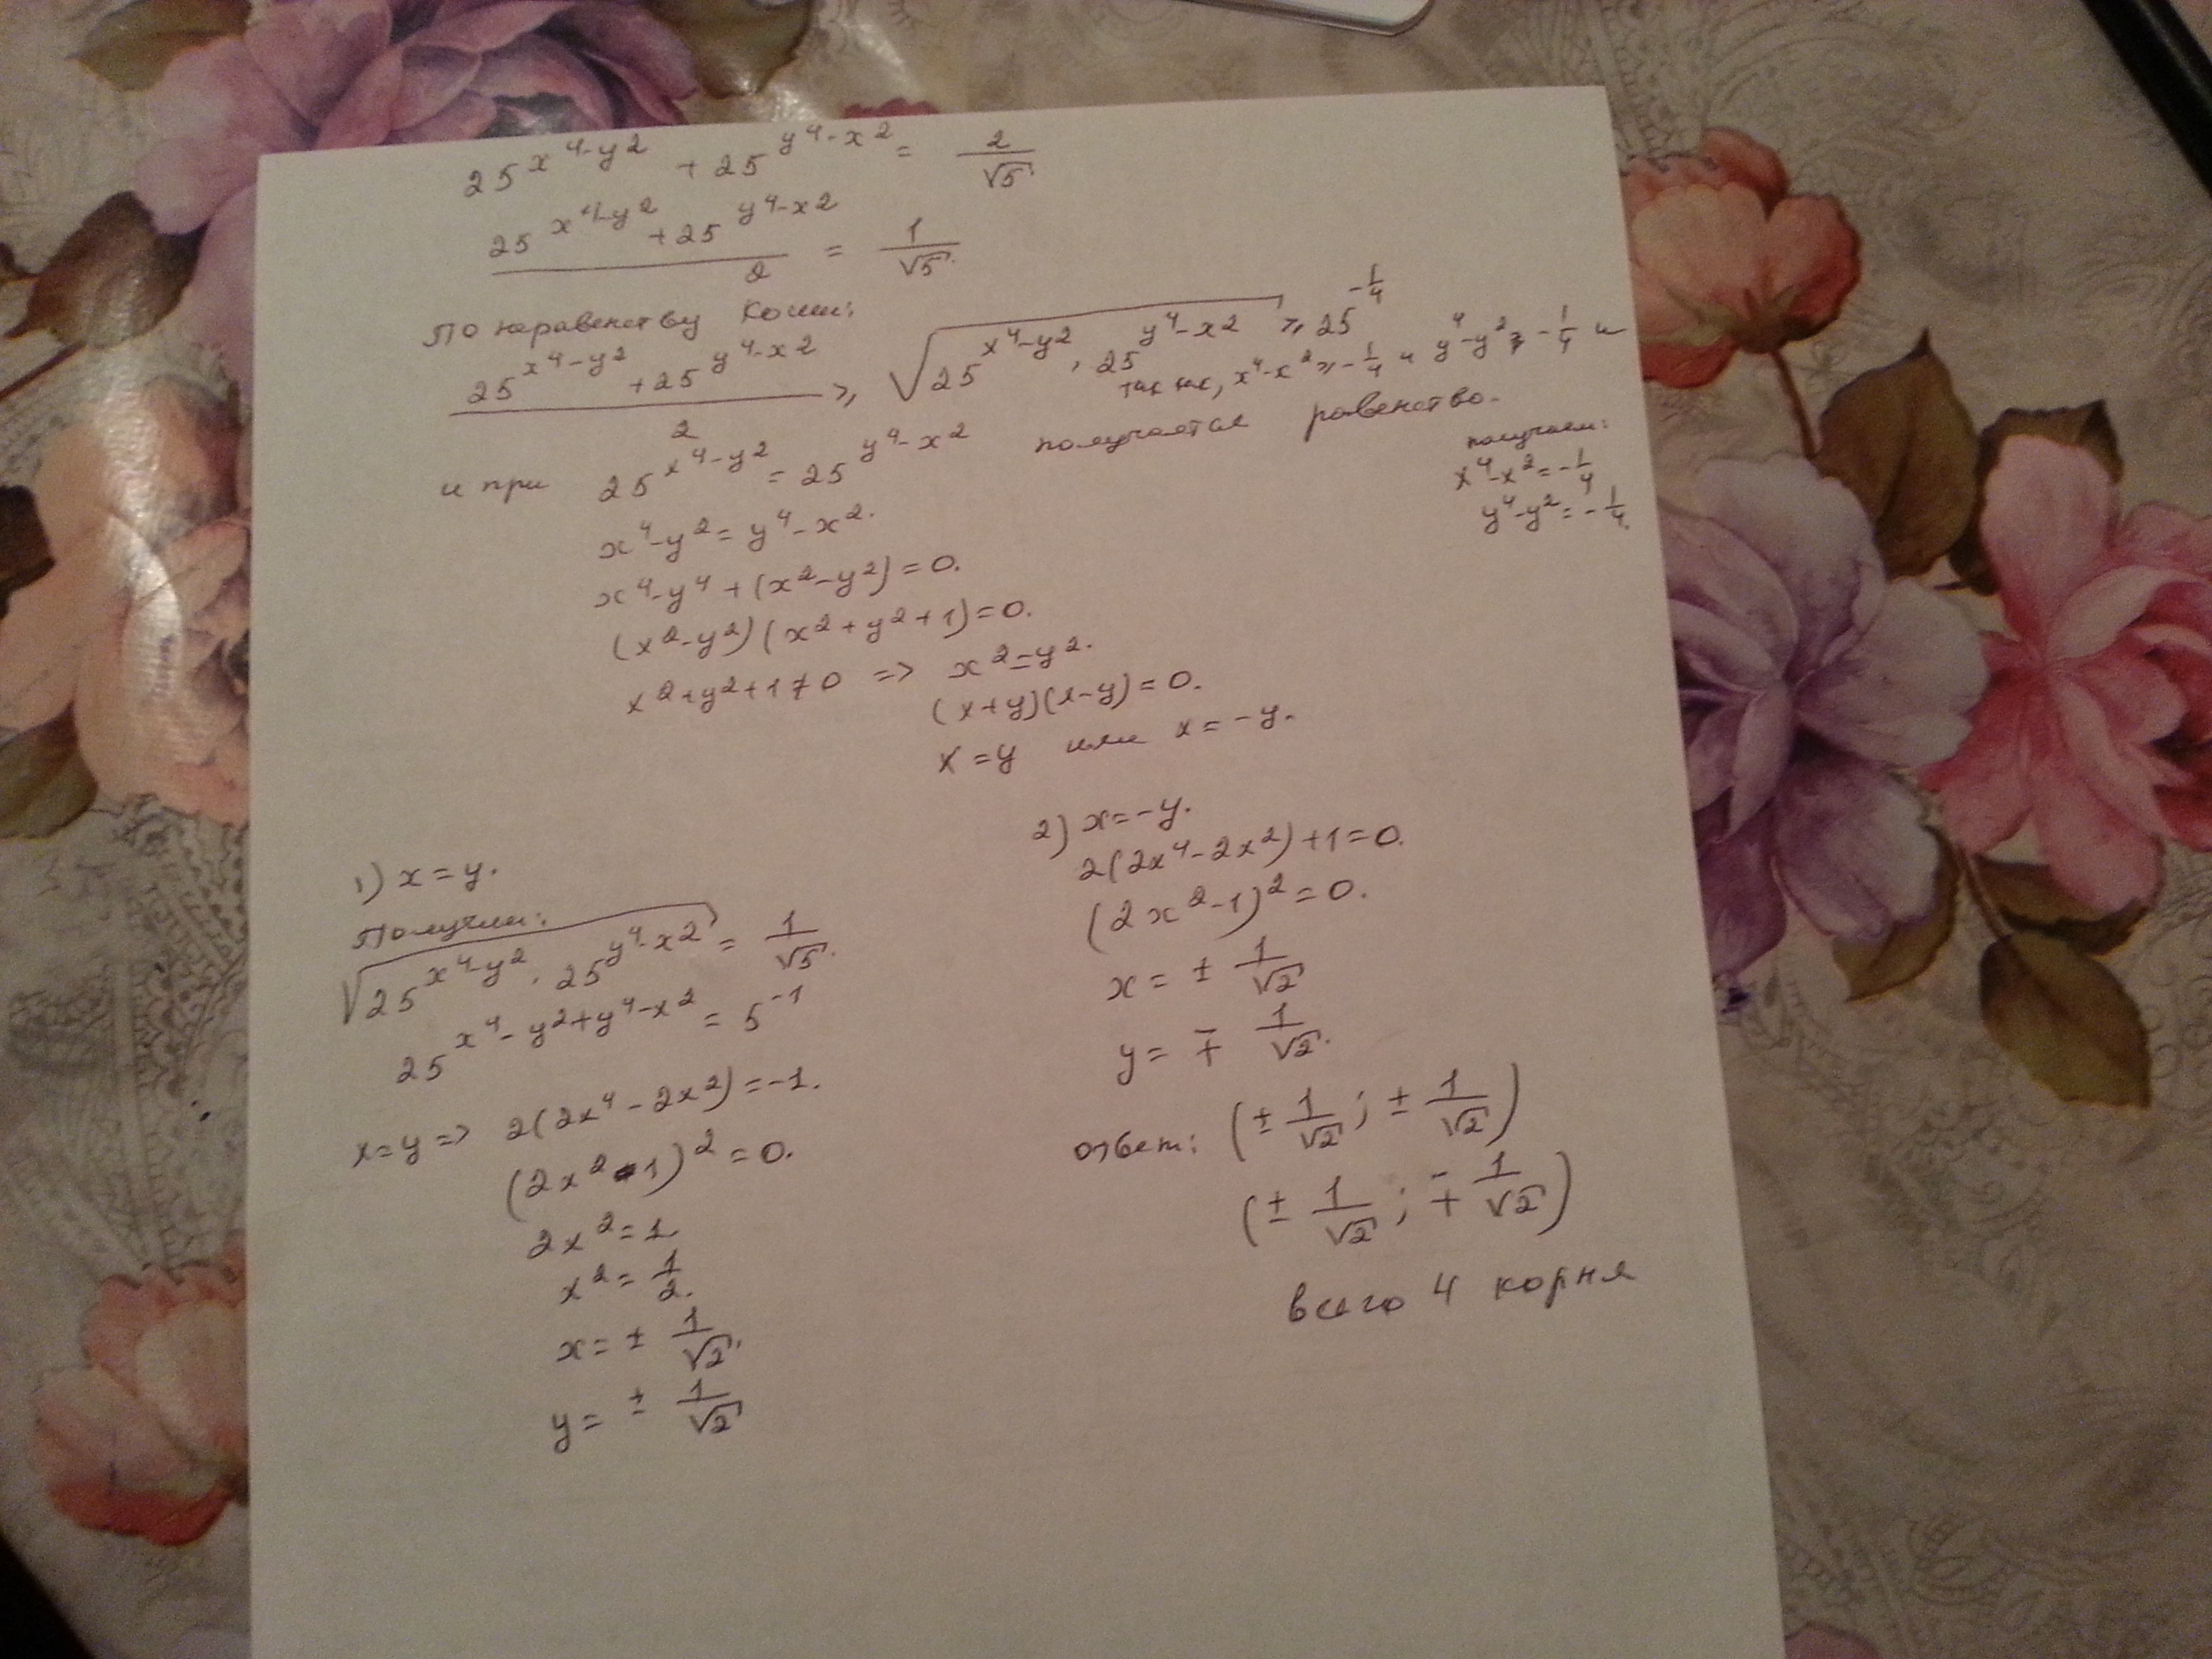 25^{x^4-y^2} + 25^{y^4-x^2} = \frac{2}{\sqrt{5}}
\frac{25^{x^4-y^2} + 25^{y^4-x^2}}{2} = \frac{1}{\sqrt{5}}.
По неравенству Коши:
\frac{25^{x^4-y^2} + 25^{y^4-x^2}}{2} ≥ \sqrt{25^{x^4-y^2} · 25^{y^4-x^2}} ≥ 25^{-\frac{1}{4}}
так как, x^4-x^2 ≥ -\frac{1}{4} и y^4-y^2 ≥ -\frac{1}{4} и
и при 25^{x^4-y^2} = 25^{y^4-x^2} получается равенство.
получаем:
x^4-x^2 = -\frac{1}{4}
y^4-y^2 = -\frac{1}{4}.
x^4-y^2 = y^4-x^2.
x^4-y^4 + (x^2-y^2) = 0.
(x^2-y^2)(x^2+y^2+1) = 0.
x^2+y^2+1 ≠ 0 => x^2 = y^2.
(x+y)(x-y) = 0.
x = y или x = -y.
1) x = y.
Получим:
\sqrt{25^{x^4-y^2} · 25^{y^4-x^2}} = \frac{1}{\sqrt{5}}.
25^{x^4-y^2+y^4-x^2} = 5^{-1}
x = y => 2(2x^4 - 2x^2) = -1.
(2x^2 - 1)^2 = 0.
2x^2 = 1
x^2 = \frac{1}{2}.
x = ± \frac{1}{\sqrt{2}}.
y = ± \frac{1}{\sqrt{2}}
2) x = -y.
2(2x^4 - 2x^2) + 1 = 0.
(2x^2 - 1)^2 = 0.
x = ± \frac{1}{\sqrt{2}}
y = ∓ \frac{1}{\sqrt{2}}.
ответ: (± \frac{1}{\sqrt{2}}; ± \frac{1}{\sqrt{2}})
(± \frac{1}{\sqrt{2}}; ∓ \frac{1}{\sqrt{2}})
всего 4 корня